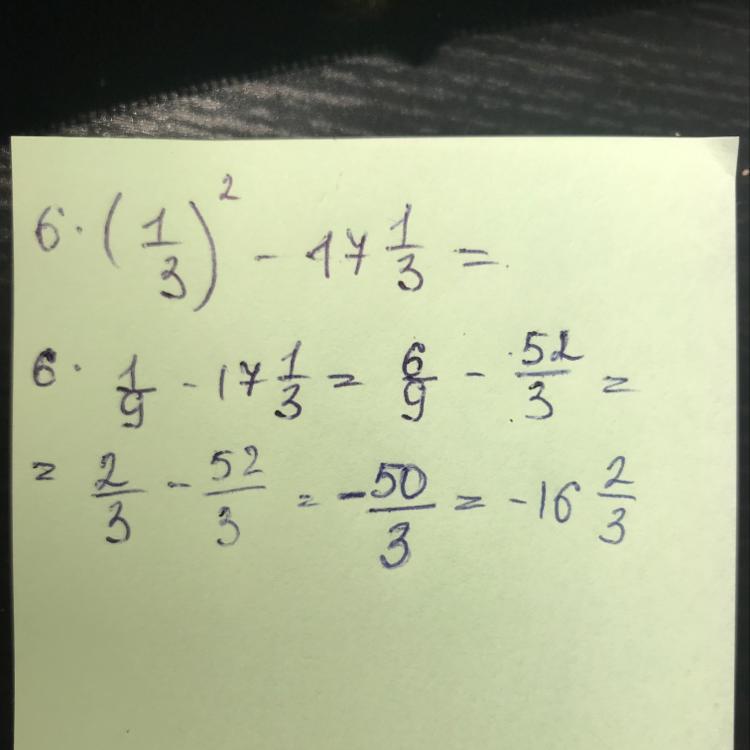 6 · (1/3)² - 17 1/3 =
6 · 1/9 - 17 1/3 = 6/9 - 52/3 =
= 2/3 - 52/3 = -50/3 = -16 2/3